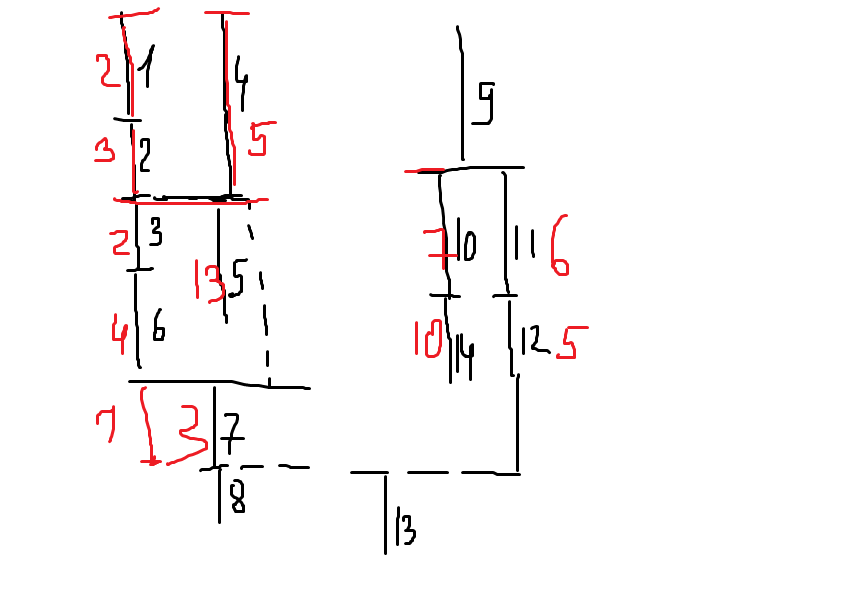 2 1 4 9
3 2 5
2 3 13 5 7 10 11 6
4 6 10 14 12 5
7 3 7
8 13